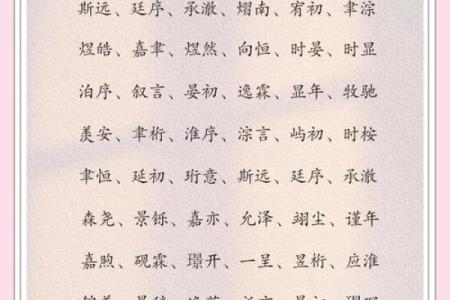 斯远、廷序、承澈、熠南、宥初、聿淙
煜皓、嘉聿、煜然、向恒、时晏、时显
泊序、叙言、晏初、逸霖、显年、牧驰
羡安、聿桁、淮序、淙言、屿初、时桉
聿恒、延初、珩意、斯远、廷序、承澈
森尧、景铄、嘉亦、允泽、翊尘、谨年
嘉煦、砚霖、璟开、一呈、昱桁、应淮